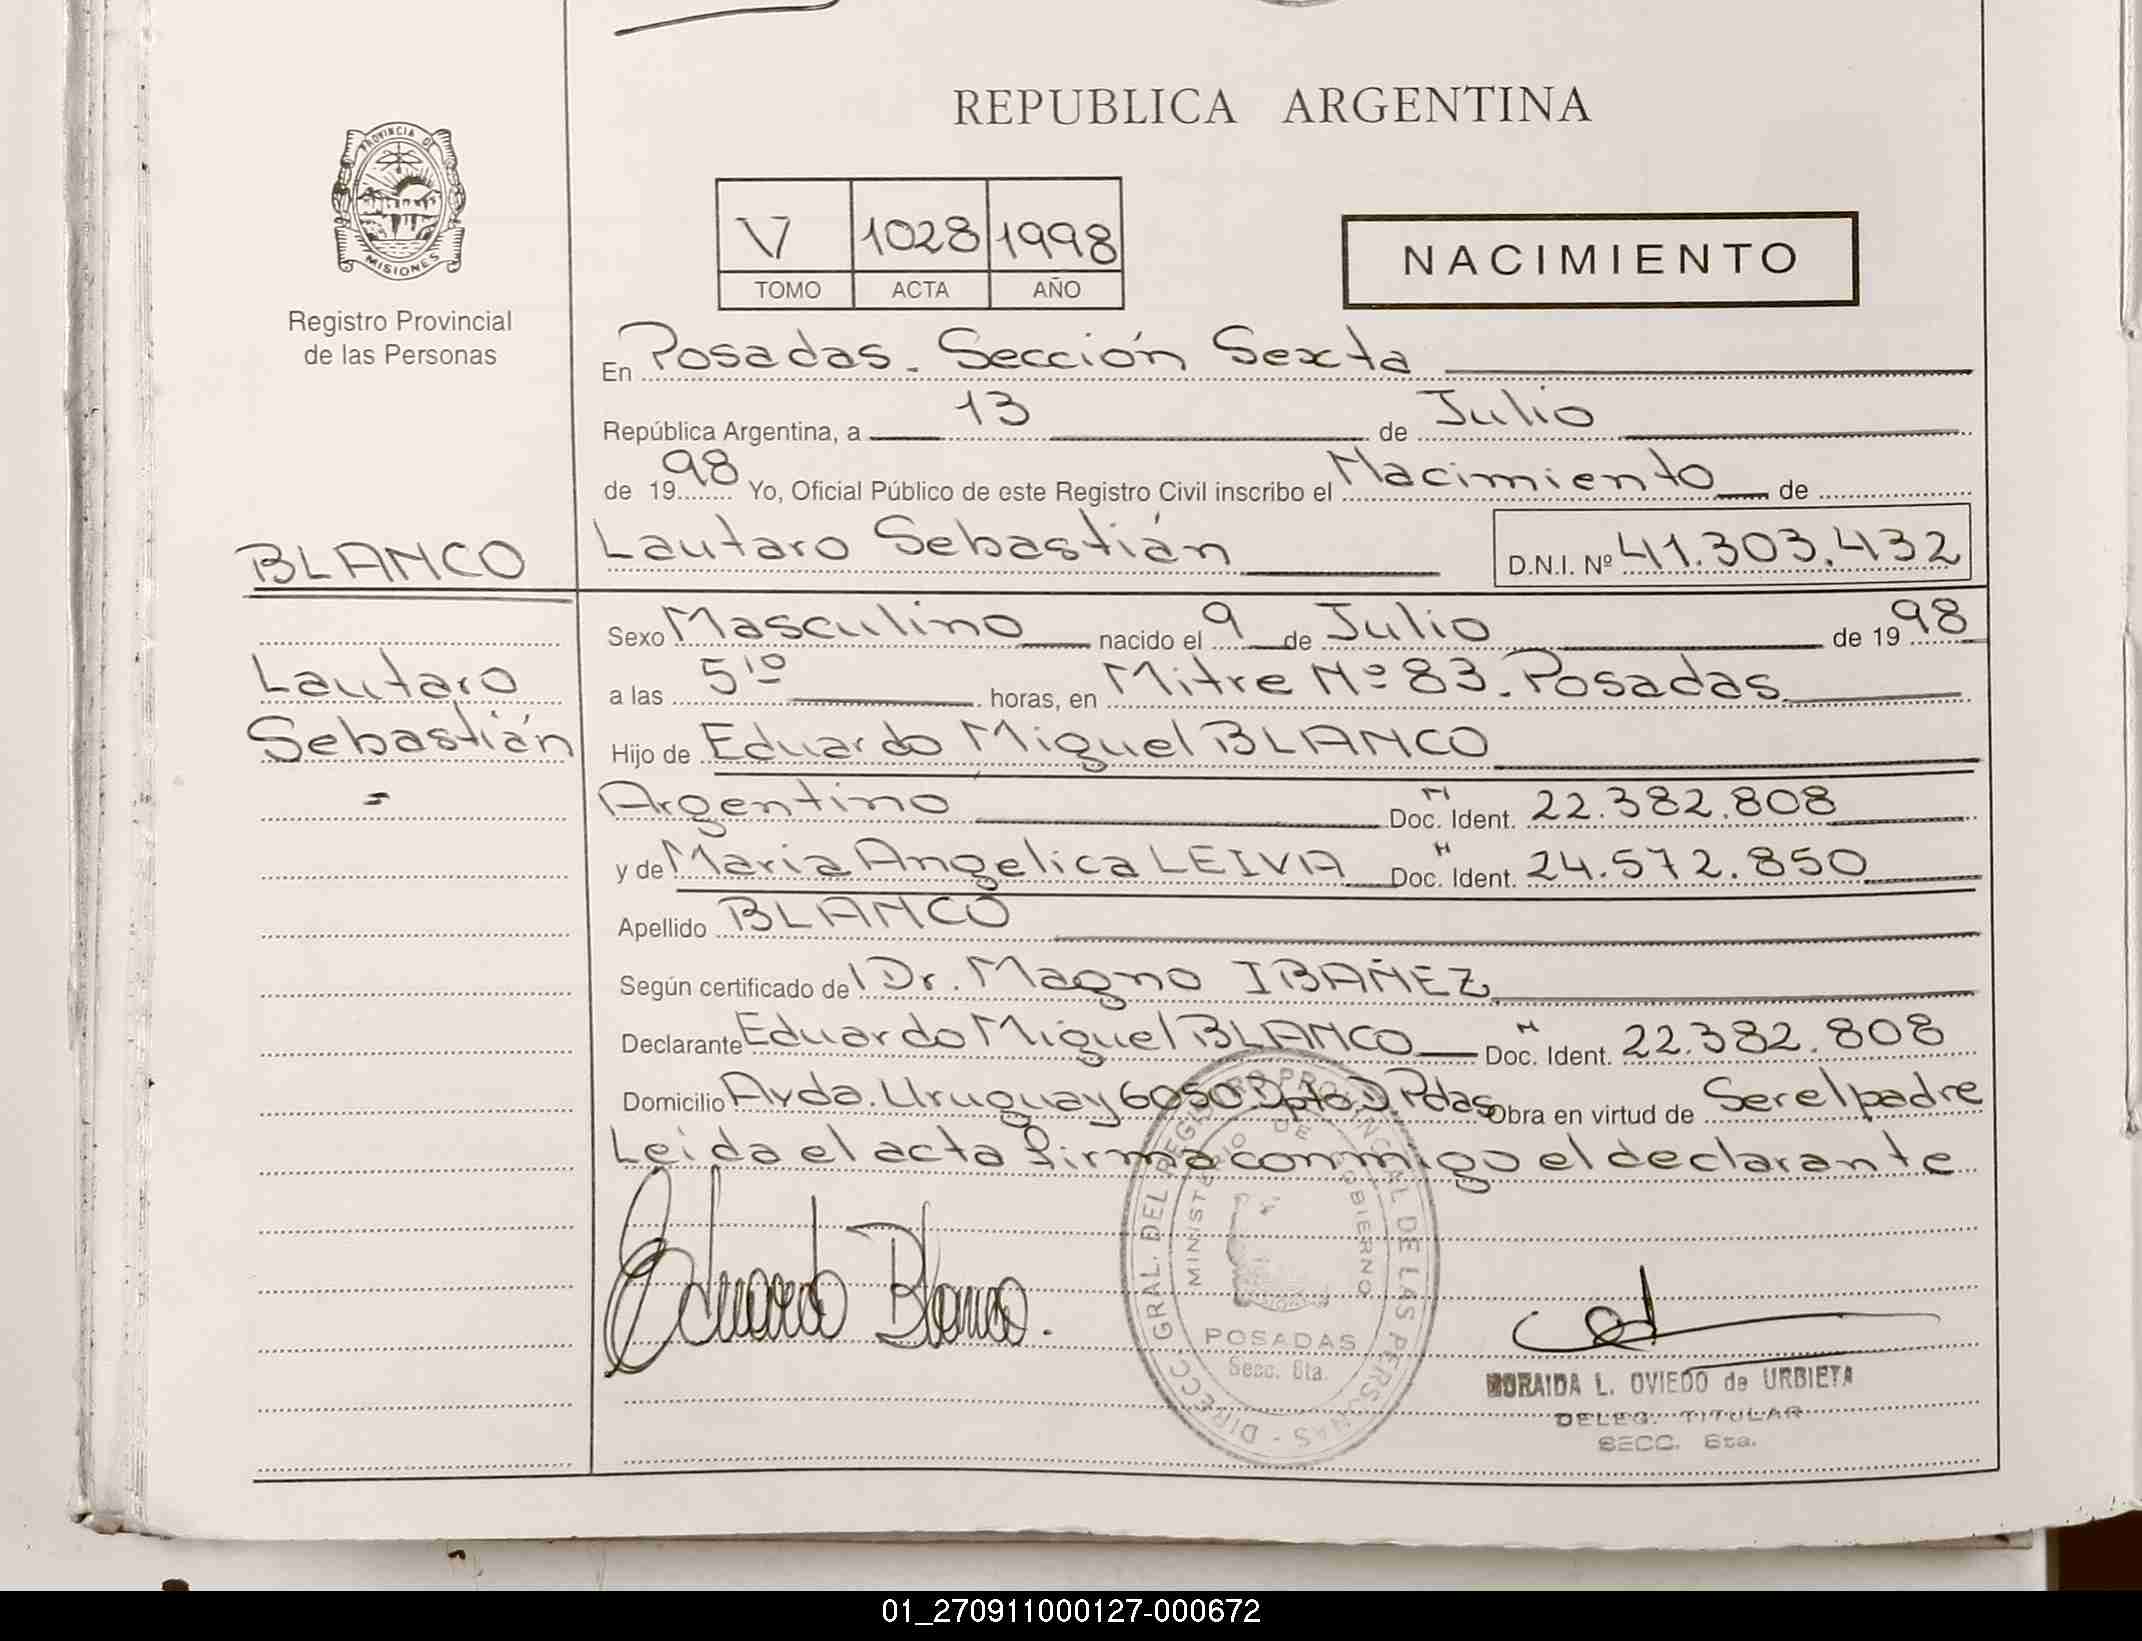 REPUBLICA ARGENTINA
PROVINCIA DE
MISIONES
Registro Provincial
de las Personas
V 1028 1998
TOMO ACTA AÑO
NACIMIENTO
En Posadas. Sección Sexta
República Argentina, a 13 de Julio
de 1998 Yo, Oficial Público de este Registro Civil inscribo el Nacimiento de
BLANCO Lautaro Sebastián D.N.I. Nº 41.303.432
Sexo Masculino nacido el 9 de Julio de 1998
Lautaro a las 5¹⁰ horas, en Mitre Nº 83. Posadas
Sebastián Hijo de Eduardo Miguel BLANCO
Argentino Doc. N Ident. 22.382.808
y de Maria Angelica LEIVA Doc. N Ident. 24.572.850
Apellido BLANCO
Según certificado del Dr. Magno IBAÑEZ
Declarante Eduardo Miguel BLANCO Doc. N Ident. 22.382.808
Domicilio Avda. Uruguay 6050 Dpto. D. Pdas Obra en virtud de Ser el padre
Leida el acta firma conmigo el declarante
Eduardo Blanco.
DIRECC. GRAL. DEL REGISTRO PROVINCIAL DE LAS PERSONAS
MINISTERIO DE GOBIERNO
POSADAS
Secc. 6ta.
MORAIDA L. OVIEDO de URBIETA
DELEG. TITULAR
SECC. 6ta.
01_270911000127-000672